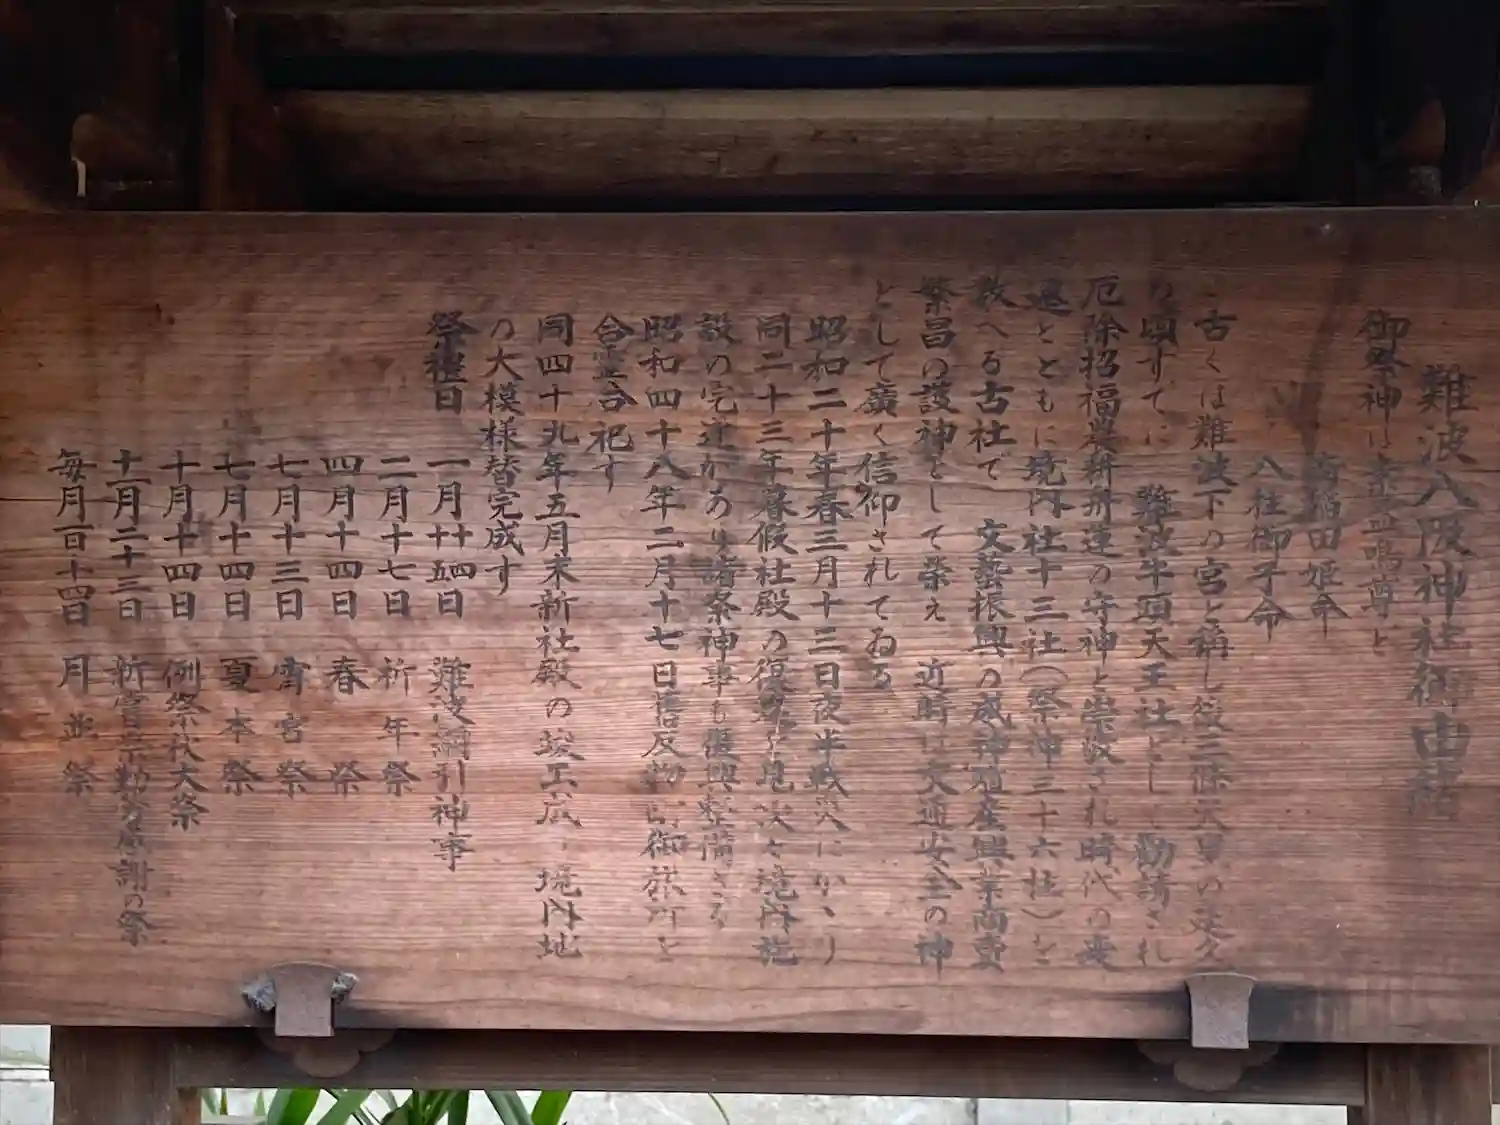 難波八阪神社御由緒
御祭神は素盞嗚尊と
奇稲田姫命
八柱御子命
古くは難波下の宮と稱し後三條天皇の延久
の頃すでに 難波牛頭天王社として勧請され
厄除招福農耕舟運の守神と崇敬され時代の変
遷とともに境内社十三社(祭神三十六柱)を
数へる古社で 文藝振興の威神殖産興業商賣
繁昌の護神として榮え 近時は交通安全の神
として廣く信仰されてゐる
昭和二十年春三月十三日夜半戦災にかゝり
同二十三年暮假社殿の復興を見次々境内施
設の完遂があり諸祭神事も復興整備さる
昭和四十八年二月十七日 反物 御旅所を
合靈合祀す
同四十九年五月末新社殿の竣工成 境内地
の大模様替完成す
祭禮日
一月廿四五日 難波綱引神事
二月十七日 祈年祭
四月十四日 春祭
七月十三日 宵宮祭
七月十四日 夏本祭
十月十四日 例祭秋大祭
十一月二十三日 新嘗祭勤労感謝の祭
毎月一日十四日 月並祭